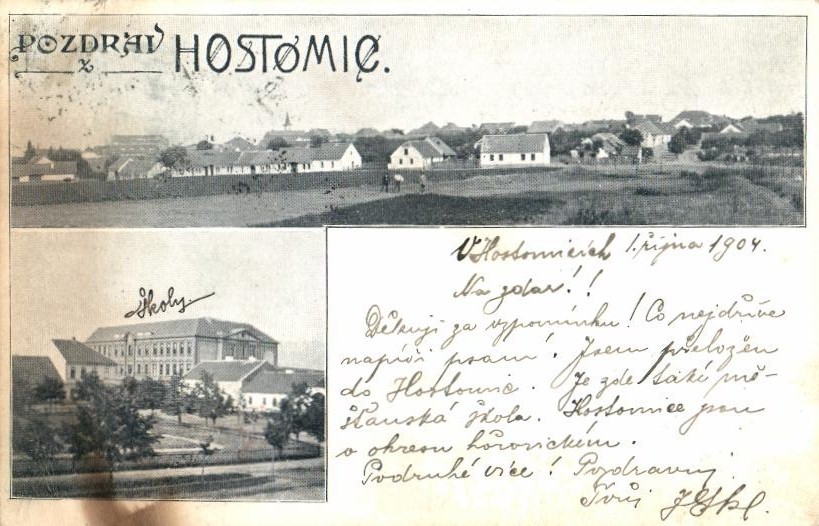 POZDRAV
z HOSTOMIC.
Školy.
V Hostomicích 1. října 1904.
Na zdar!!
Děkuji za vzpomínku! Co nejdříve
napíši psaní. Jsem přeložen
do Hostomic. Je zde také mě-
šťanská škola. Hostomice jsou
v okresu hořovickém.
Podruhé více! Pozdravuji
Tvůj